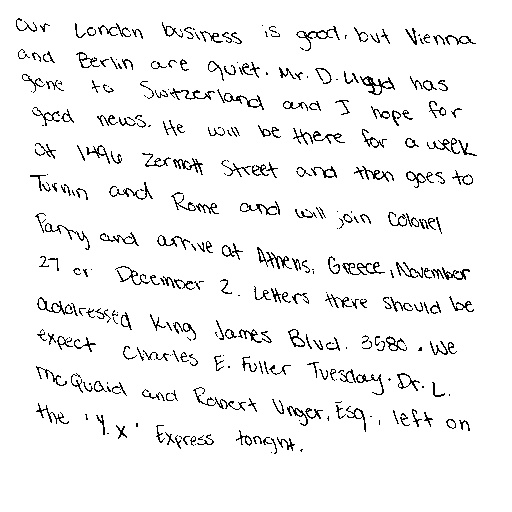 our London business is good, but Vienna
and Berlin are quiet. Mr. D. Lloyd has
gone to Switzerland and I hope for
good news. He will be there for a week
at 1496 Zermott Street and then goes to
Turnin and Rome and will join Colonel
Parry and arrive at Athens, Greece, November
27 or December 2. Letters there should be
addressed King James Blvd. 3580. We
expect Charles E. Fuller Tuesday. Dr. L.
McQuaid and Robert Unger, Esq., left on
the 'Y.X' Express tonight.